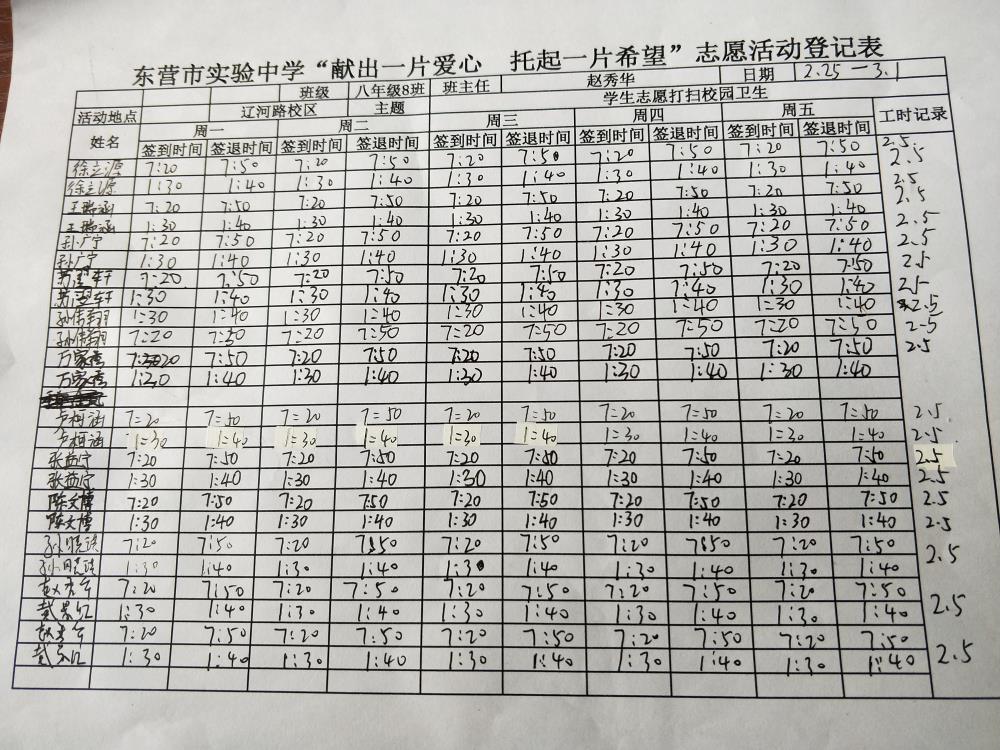 东营市实验中学“献出一片爱心 托起一片希望”志愿活动登记表
班级 八年级8班 班主任 赵秀华 日期 2.25-3.1
活动地点 辽河路校区 主题 学生志愿打扫校园卫生
姓名 周一 周二 周三 周四 周五 工时记录
签到时间 签退时间 签到时间 签退时间 签到时间 签退时间 签到时间 签退时间 签到时间 签退时间
徐立源 7:20 7:50 7:20 7:50 7:20 7:50 7:20 7:50 7:20 7:50 2.5
徐立源 1:30 1:40 1:30 1:40 1:30 1:40 1:30 1:40 1:30 1:40 2.5
王瑞涵 7:20 7:50 7:20 7:50 7:20 7:50 7:20 7:50 7:20 7:50 2.5
王瑞涵 1:30 1:40 1:30 1:40 1:30 1:40 1:30 1:40 1:30 1:40 2.5
孙广宁 7:20 7:50 7:20 7:50 7:20 7:50 7:20 7:50 7:20 7:50 2.5
孙广宁 1:30 1:40 1:30 1:40 1:30 1:40 1:30 1:40 1:30 1:40 2.5
7:20 7:50 7:20 7:50 7:20 7:50 7:20 7:50 7:20 7:50 2.5
1:30 1:40 1:30 1:40 1:30 1:40 1:30 1:40 1:30 1:40 2.5
孙伟翔 1:30 1:40 1:30 1:40 1:30 1:40 1:30 1:40 1:30 1:40 2.5
孙伟翔 7:20 7:50 7:20 7:50 7:20 7:50 7:20 7:50 7:20 7:50 2.5
万家 7:20 7:50 7:20 7:50 7:20 7:50 7:20 7:50 7:20 7:50 2.5
万家 1:30 1:40 1:30 1:40 1:30 1:40 1:30 1:40 1:30 1:40
卢柯涵 7:20 7:50 7:20 7:50 7:20 7:50 7:20 7:50 7:20 7:50 2.5
卢柯涵 1:30 1:40 1:30 1:40 1:30 1:40 1:30 1:40 1:30 1:40 2.5
张益宁 7:20 7:50 7:20 7:50 7:20 7:50 7:20 7:50 7:20 7:50 2.5
张益宁 1:30 1:40 1:30 1:40 1:30 1:40 1:30 1:40 1:30 1:40 2.5
陈文博 7:20 7:50 7:20 7:50 7:20 7:50 7:20 7:50 7:20 7:50 2.5
陈文博 1:30 1:40 1:30 1:40 1:30 1:40 1:30 1:40 1:30 1:40 2.5
7:20 7:50 7:20 7:50 7:20 7:50 7:20 7:50 7:20 7:50 2.5
1:30 1:40 1:30 1:40 1:30 1:40 1:30 1:40 1:30 1:40
7:20 7:50 7:20 7:50 7:20 7:50 7:20 7:50 7:20 7:50 2.5
1:30 1:40 1:30 1:40 1:30 1:40 1:30 1:40 1:30 1:40
7:20 7:50 7:20 7:50 7:20 7:50 7:20 7:50 7:20 7:50 2.5
1:30 1:40 1:30 1:40 1:30 1:40 1:30 1:40 1:30 1:40